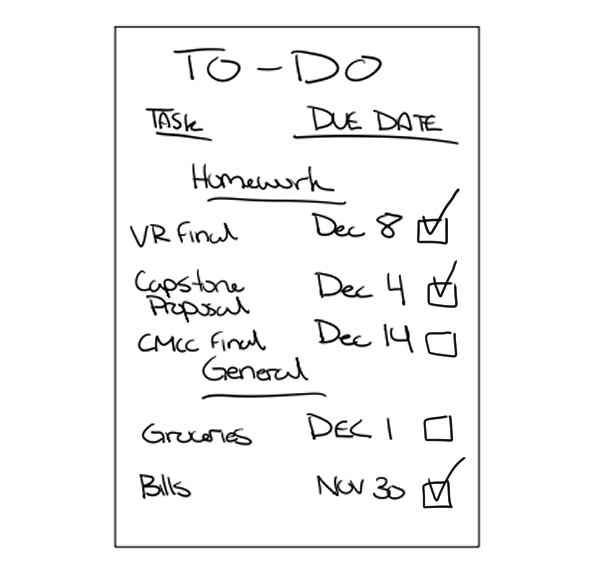 TO-DO
TASK DUE DATE
Homework
VR Final Dec 8
Capstone Dec 4
Proposal
CMCC Final Dec 14
General
Groceries DEC 1
Bills Nov 30